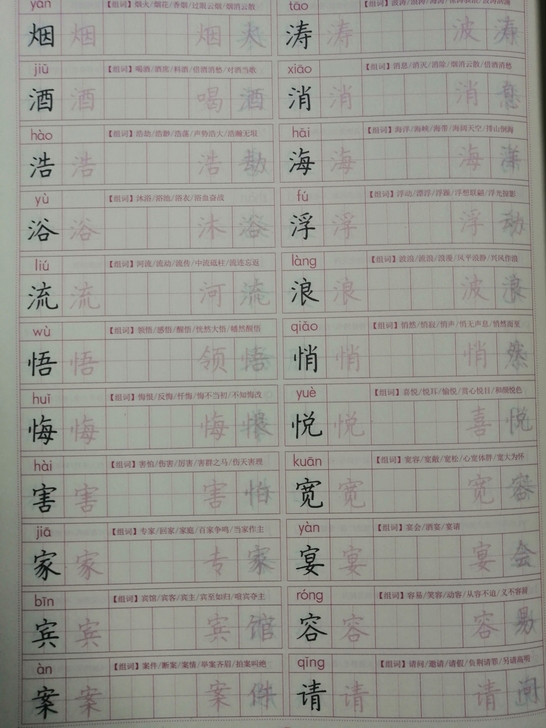 yān tāo
【组词】烟火/烟花/香烟/过眼云烟/烟消云散
烟 烟 烟 火 涛 涛 波 涛
jiǔ 【组词】喝酒/酒席/料酒/借酒消愁/对酒当歌 xiāo 【组词】消息/消灭/消除/烟消云散/借酒消愁
酒 酒 喝 酒 消 消 消 息
hào 【组词】浩劫/浩渺/浩荡/声势浩大/浩瀚无垠 hǎi 【组词】海洋/海峡/海带/海阔天空/排山倒海
浩 浩 浩 劫 海 海 海 洋
yù 【组词】沐浴/浴池/浴衣/浴血奋战 fú 【组词】浮动/漂浮/浮躁/浮想联翩/浮光掠影
浴 浴 沐 浴 浮 浮 浮 动
liú 【组词】河流/流动/流传/中流砥柱/流连忘返 làng 【组词】波浪/流浪/浪漫/风平浪静/兴风作浪
流 流 河 流 浪 浪 波 浪
wù 【组词】领悟/感悟/醒悟/恍然大悟/幡然醒悟 qiāo 【组词】悄然/悄寂/悄声/悄无声息/悄然而至
悟 悟 领 悟 悄 悄 悄 然
huǐ 【组词】悔恨/反悔/忏悔/悔不当初/不知悔改 yuè 【组词】喜悦/悦耳/愉悦/赏心悦目/和颜悦色
悔 悔 悔 恨 悦 悦 喜 悦
hài 【组词】害怕/伤害/厉害/害群之马/伤天害理 kuān 【组词】宽容/宽敞/宽松/心宽体胖/宽大为怀
害 害 害 怕 宽 宽 宽 容
jiā 【组词】专家/回家/家庭/百家争鸣/当家作主 yàn 【组词】宴会/酒宴/宴请
家 家 专 家 宴 宴 宴 会
bīn 【组词】宾馆/宾客/宾主/宾至如归/喧宾夺主 róng 【组词】容易/笑容/动容/从容不迫/义不容辞
宾 宾 宾 馆 容 容 容 易
àn 【组词】案件/断案/案情/举案齐眉/拍案叫绝 qǐng 【组词】请问/邀请/请假/负荆请罪/另请高明
案 案 案 件 请 请 请 问